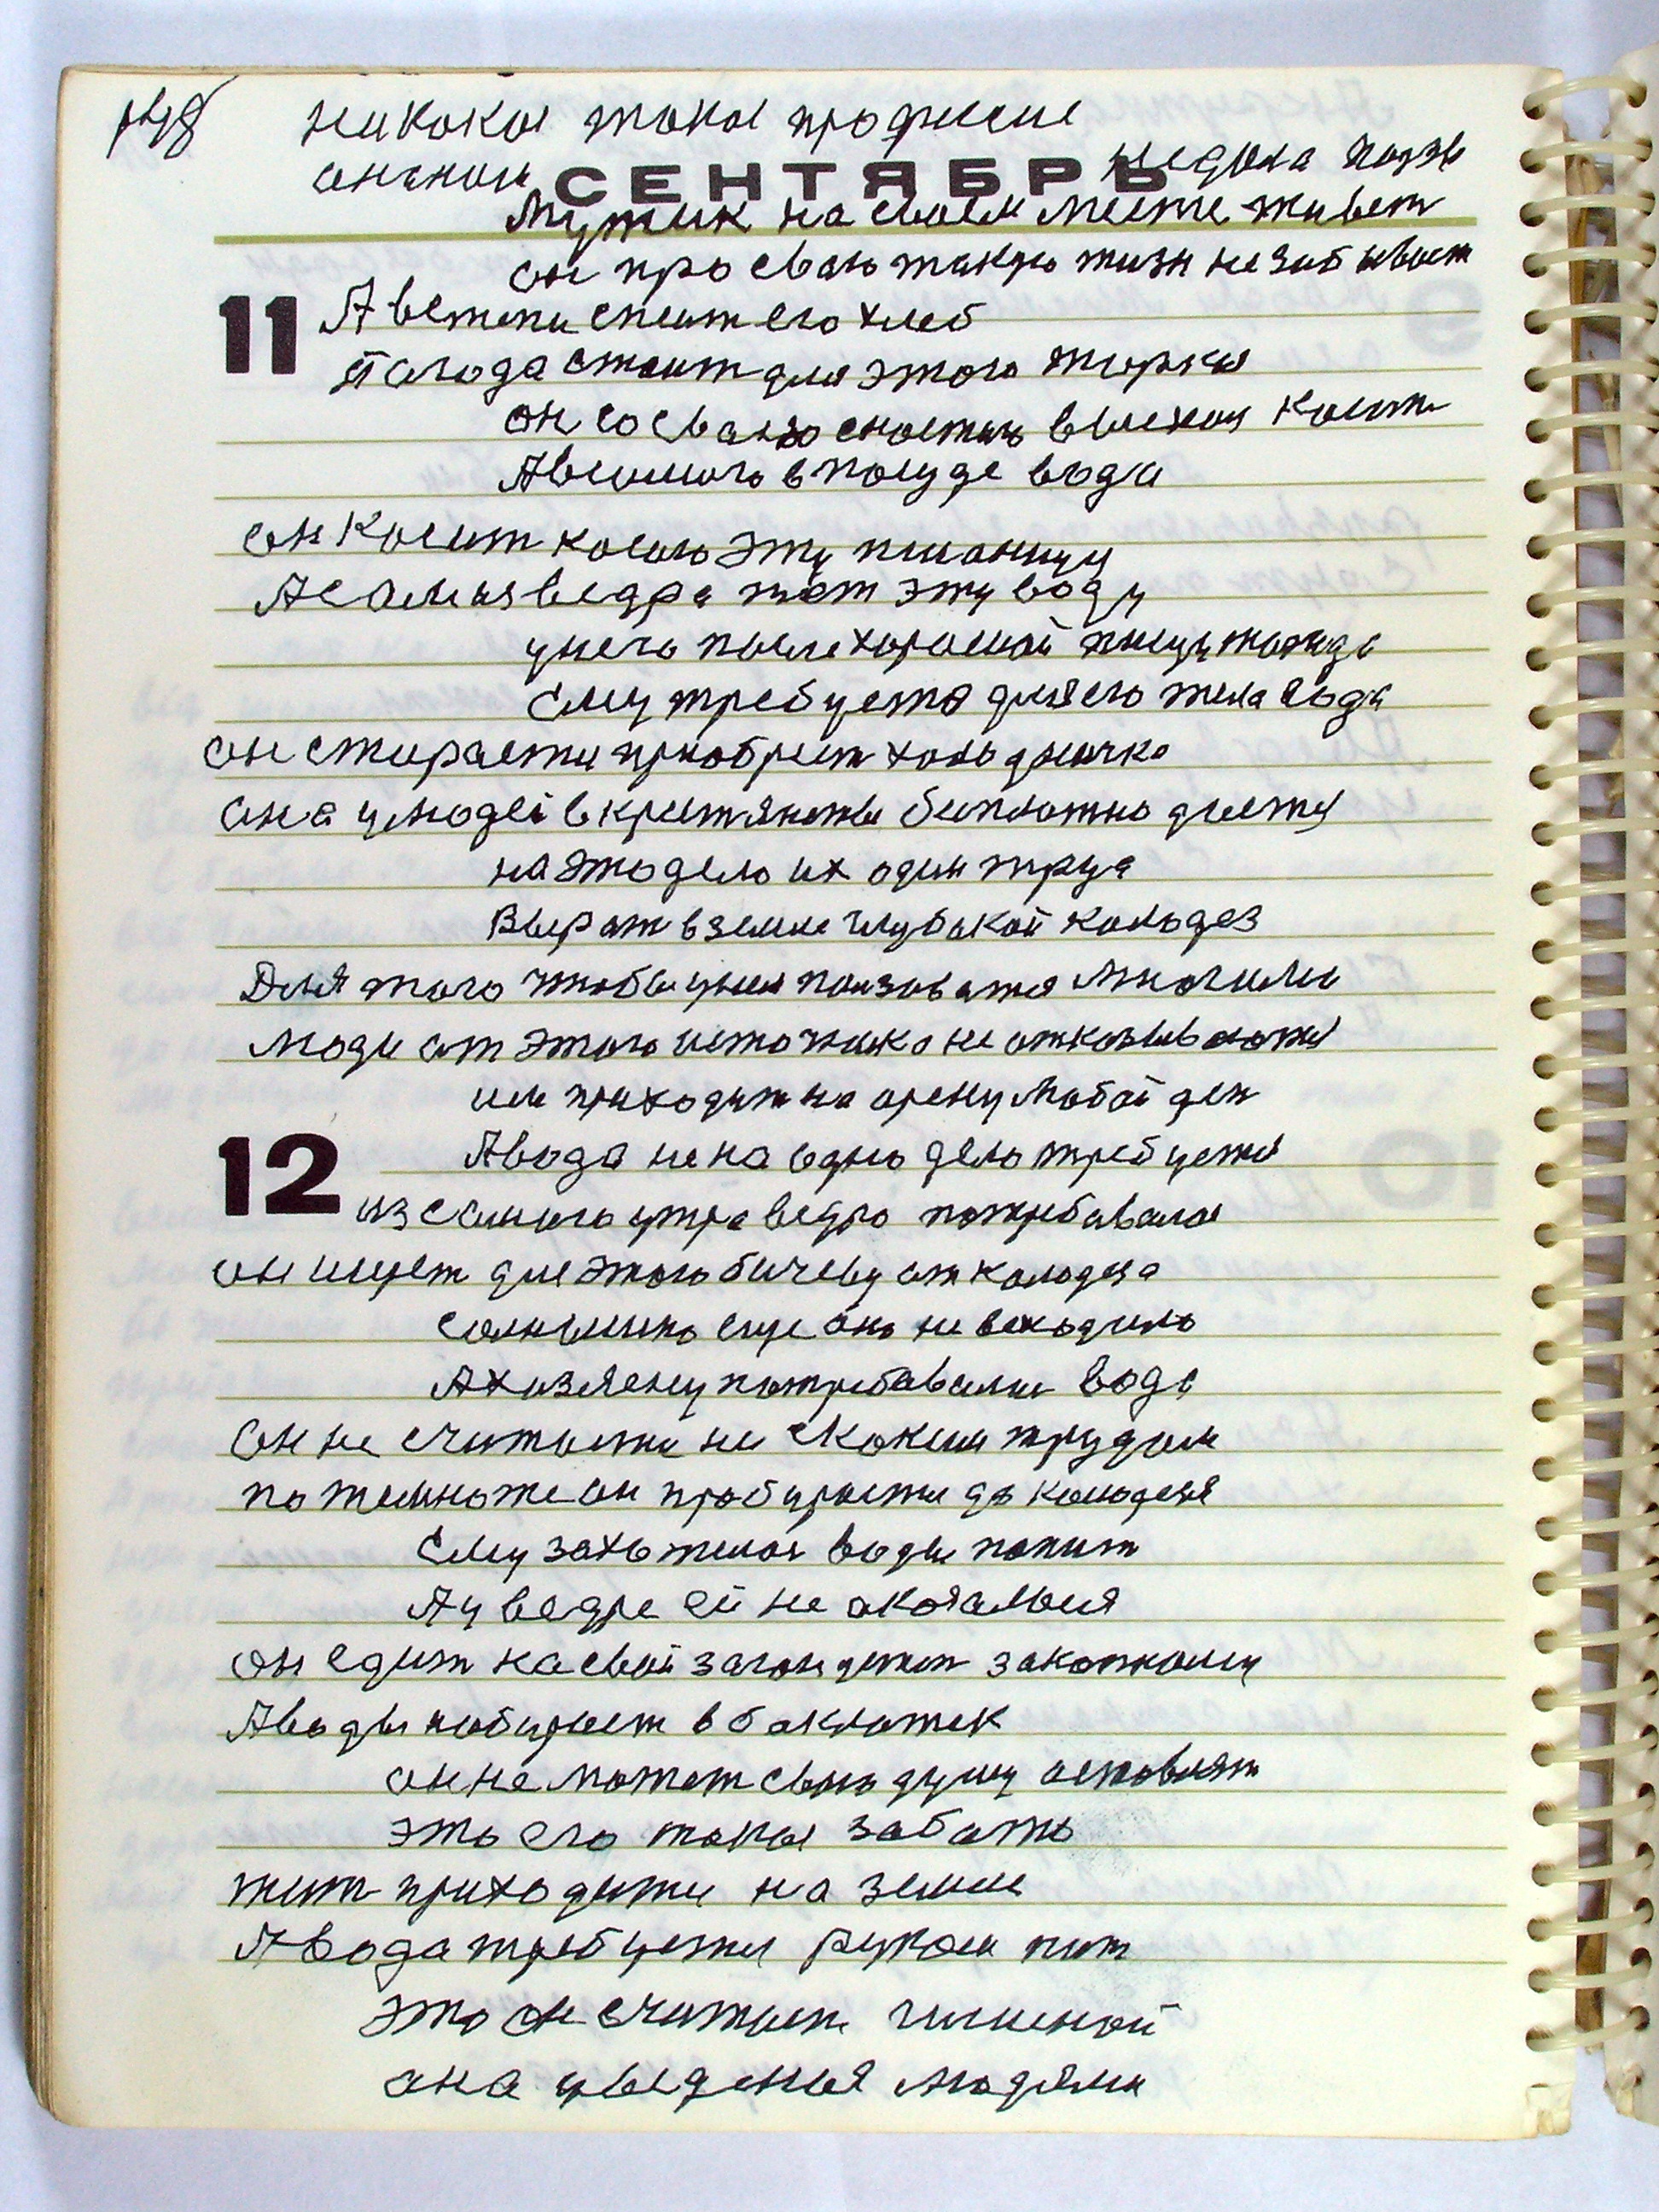 никокоя такоя профессие
СЕНТЯБРЬ
Мужик на своем месте живет
он про свою такую жизн не забывает
11
А в степи спеит его хлеб
Пагода стоит для этого жаркая
он со сваяю снастию косит
А в самого в посуде вода
он косит косою эту пшаницу
А сам из ведра пют эту воду
у него после хорошай пищи жажда
Ему требуется для его тела вода
он старается приобрест холодничка
она у людей в крестянстве бесплатно дается
на это дело их один труд
Вырат в земле глубокай колодез
Для того чтобы у них ползоватся многими
люди от этого источника не отказываются
им приходит на арену любой ден
12
А вода не на одно дело требуется
из самого утра ведро потребавалос
он ищет для этого бичеву от колодеза
солнышко еще оно не всходило
А хозяену потребавалис вода
он не считается не скокем трудом
по темноте он пробирается до колодезя
Ему захотелос воды попит
А у ведре ей не оказалася
он едит на свой загон
А воды набирает в баклажек
он не может свою душу оставлят
это его такоя забота
жит приходится на земле
А вода требуется рукам пит
это он считает
она уведеная людями